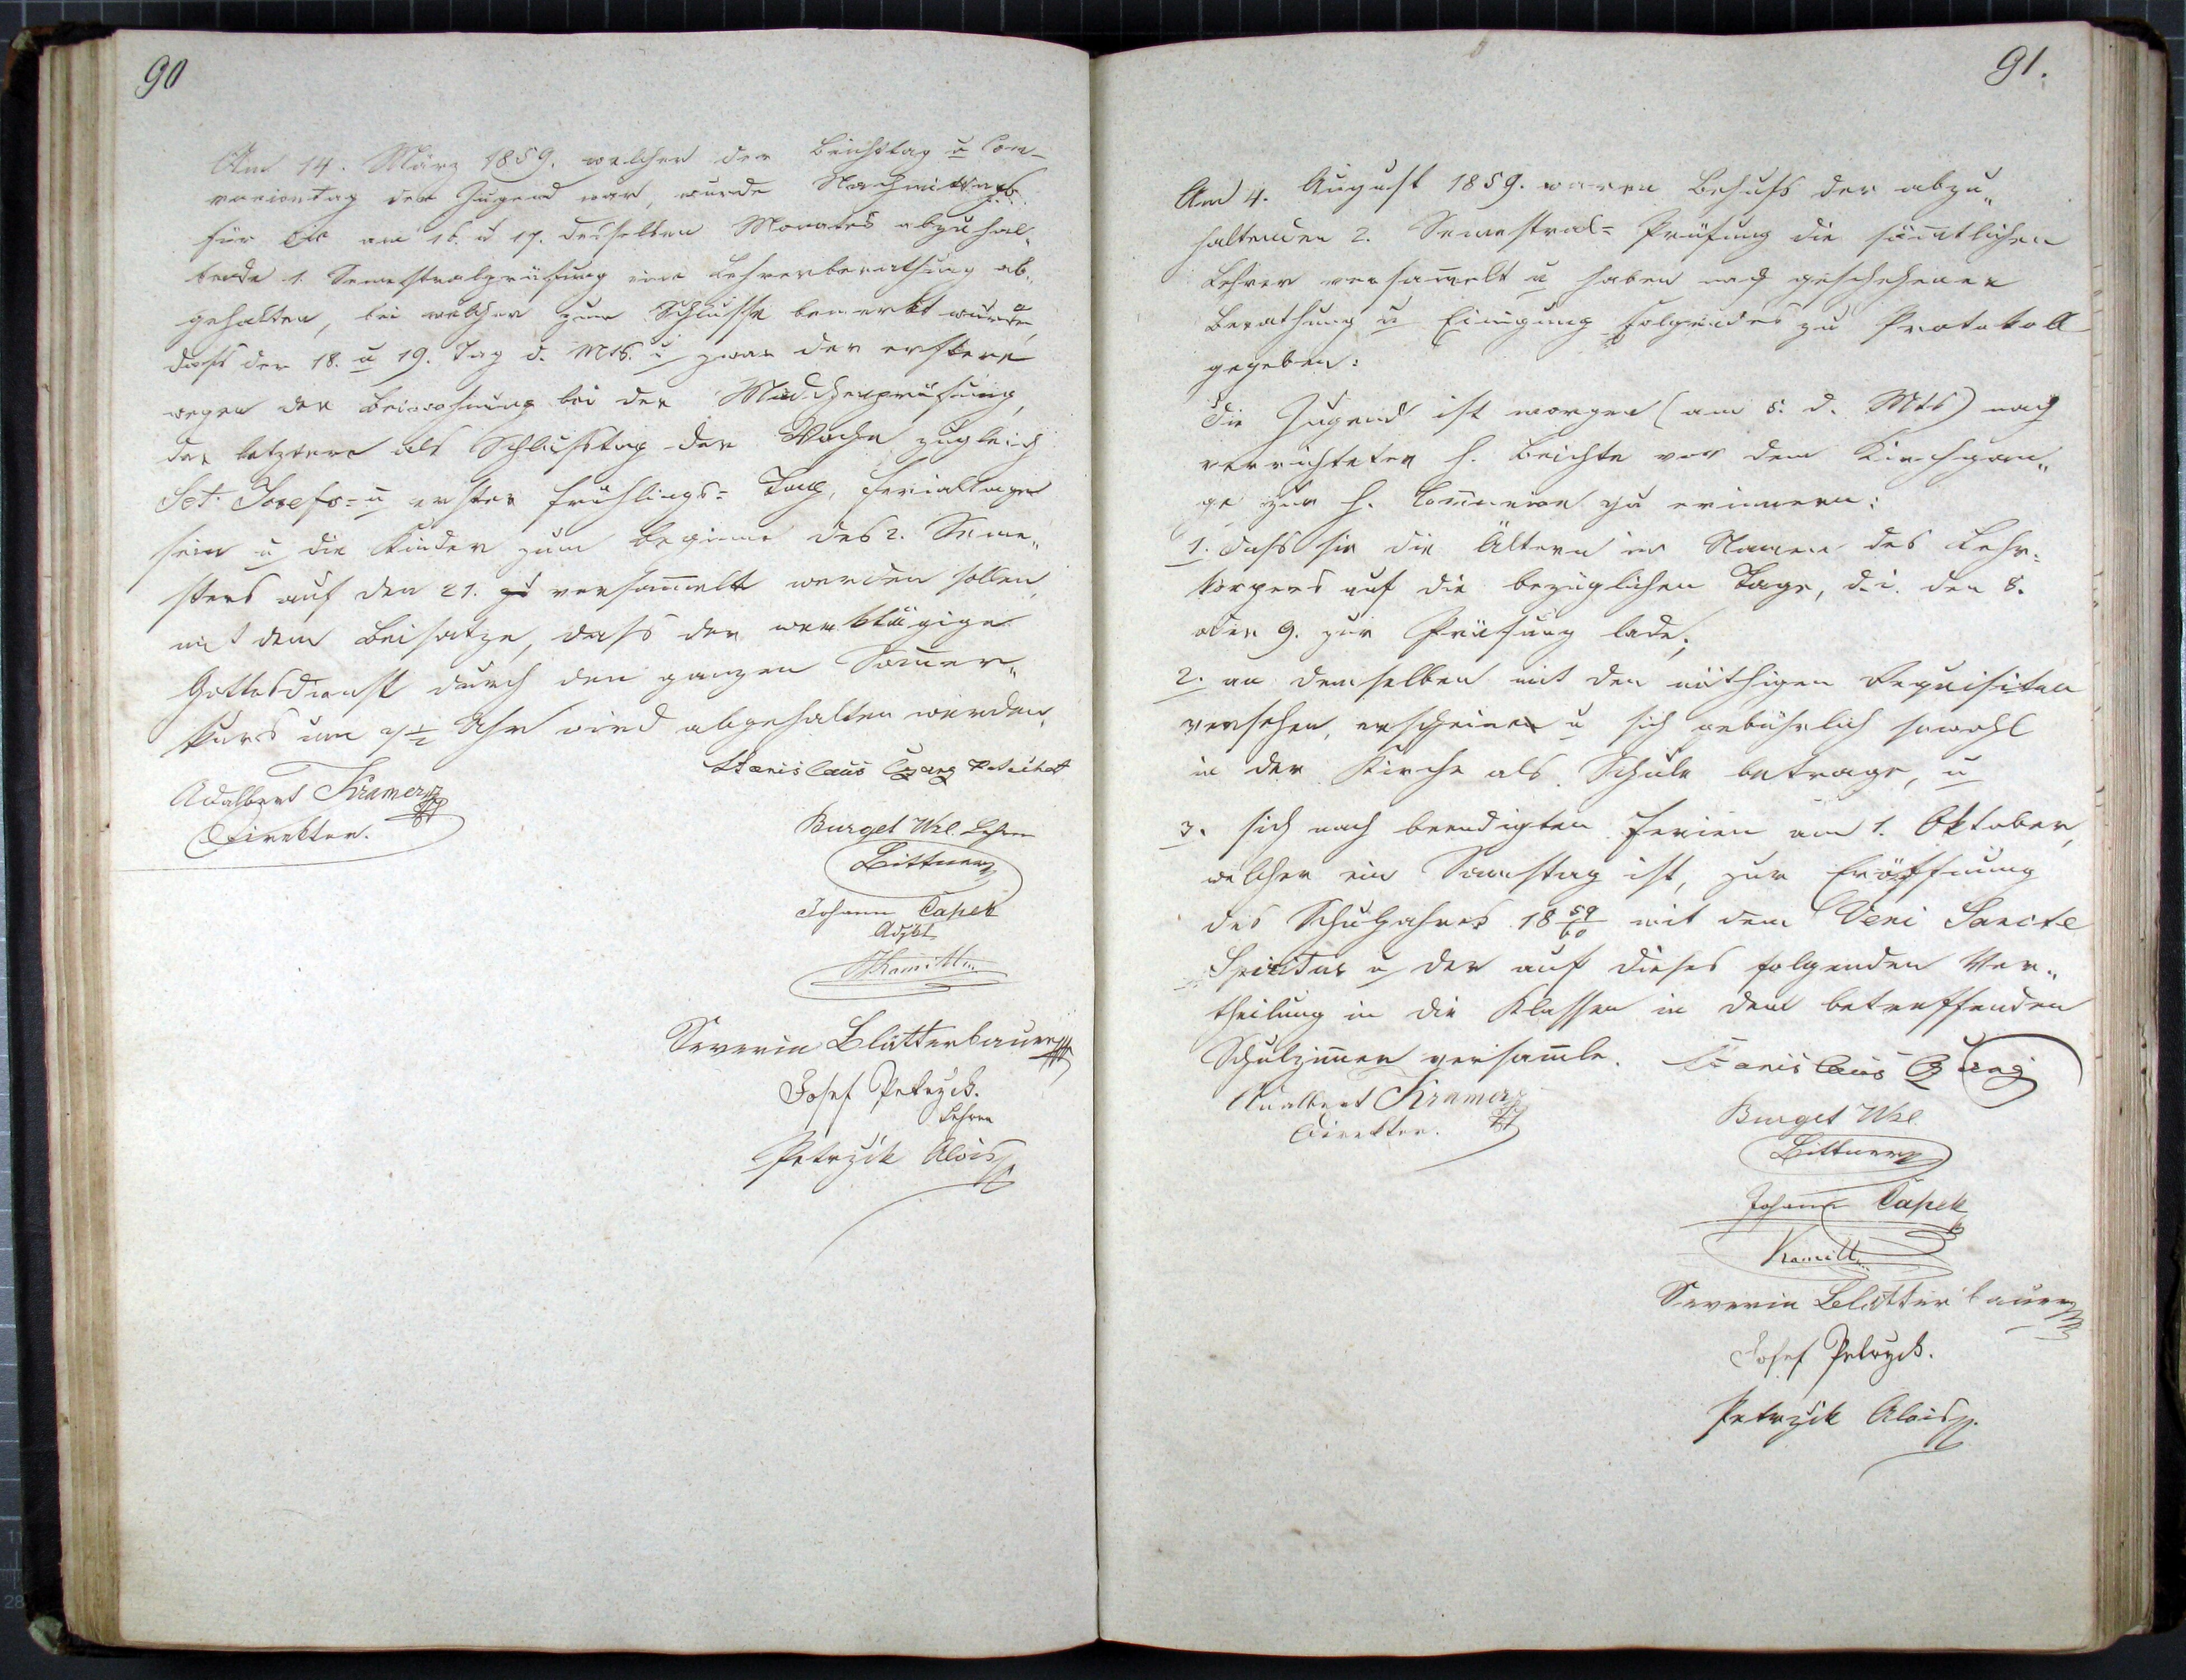 90
Am 14. März 1859. welcher der Beichttag u Com-
muniontag der Jugend war, wurde Nachmittags
für die am 16. u 17. desselben Monates abzuhal-
tende 1. Semestralprüfung eine Lehrerberathung ab-
gehalten, bei welcher zum Schlusse bemerkt wurde,
daß der 18. u 19. Tag d. Mts. u zwar der erstere
wegen der Beiwohnung bei der Mädchenprüfung,
der letztere als Schlußtag der Woche zugleich
Sct. Josefs- u erster Frühlings- Tag, Ferialtage
sein u die Kinder zum Beginne des 2. Seme-
sters auf den 21. zu versam̄elt werden sollen,
mit dem Beisatze, daß der werktägige
Gottesdienst durch den ganzen Som̄er-
kurs um 7 1/2 Uhr wird abgehalten werden.
Stanislaus Czang
Adalbert Kramer
Direktor.
Burget Wzl. Lehrer
Bittner
Johann Čapek
Adjkt
Kamitt
Severin Blätterbauer
Josef Petryck.
Lehrer
Petryck Alois
91.
Am 4. August 1859. waren Behufs der abzu-
haltenden 2. Semestral- Prüfung die säm̄tlichen
Lehrer versam̄elt u haben nach geschehener
Berathung u Einigung Folgendes zu Protokoll
gegeben:
Die Jugend ist morgen (am 5. d. Mts) nach
verrichteter h. Beichte vor dem Kirchgan-
ge zur h. Com̄union zu erinnern:
1. daß sie die Ältern im Namen des Lehr-
körpers auf die bezüglichen Tage, d. i. den 8.
oder 9. zur Prüfung lade;
2. an demselben mit den nöthigen Requisiten
versehen, erscheinen u sich gebührlich sowohl
in der Kirche als Schule betrage, u
3. sich nach beendigten Ferien am 1. Oktober,
welcher ein Samstag ist, zur Eröffnung
des Schuljahres 18 59/60 mit dem Veni Sancte
Spiritus u der auf dieses folgenden Ver-
theilung in die Klassen in dem betreffenden
Schulzim̄er versam̄le.
Stanislaus Czang
Adalbert Kramer
Direktor.
Burget Wzl.
Bittner
Johann Čapek
Kamitt
Severin Blätterbauer
Josef Petryck.
Petryck Alois.